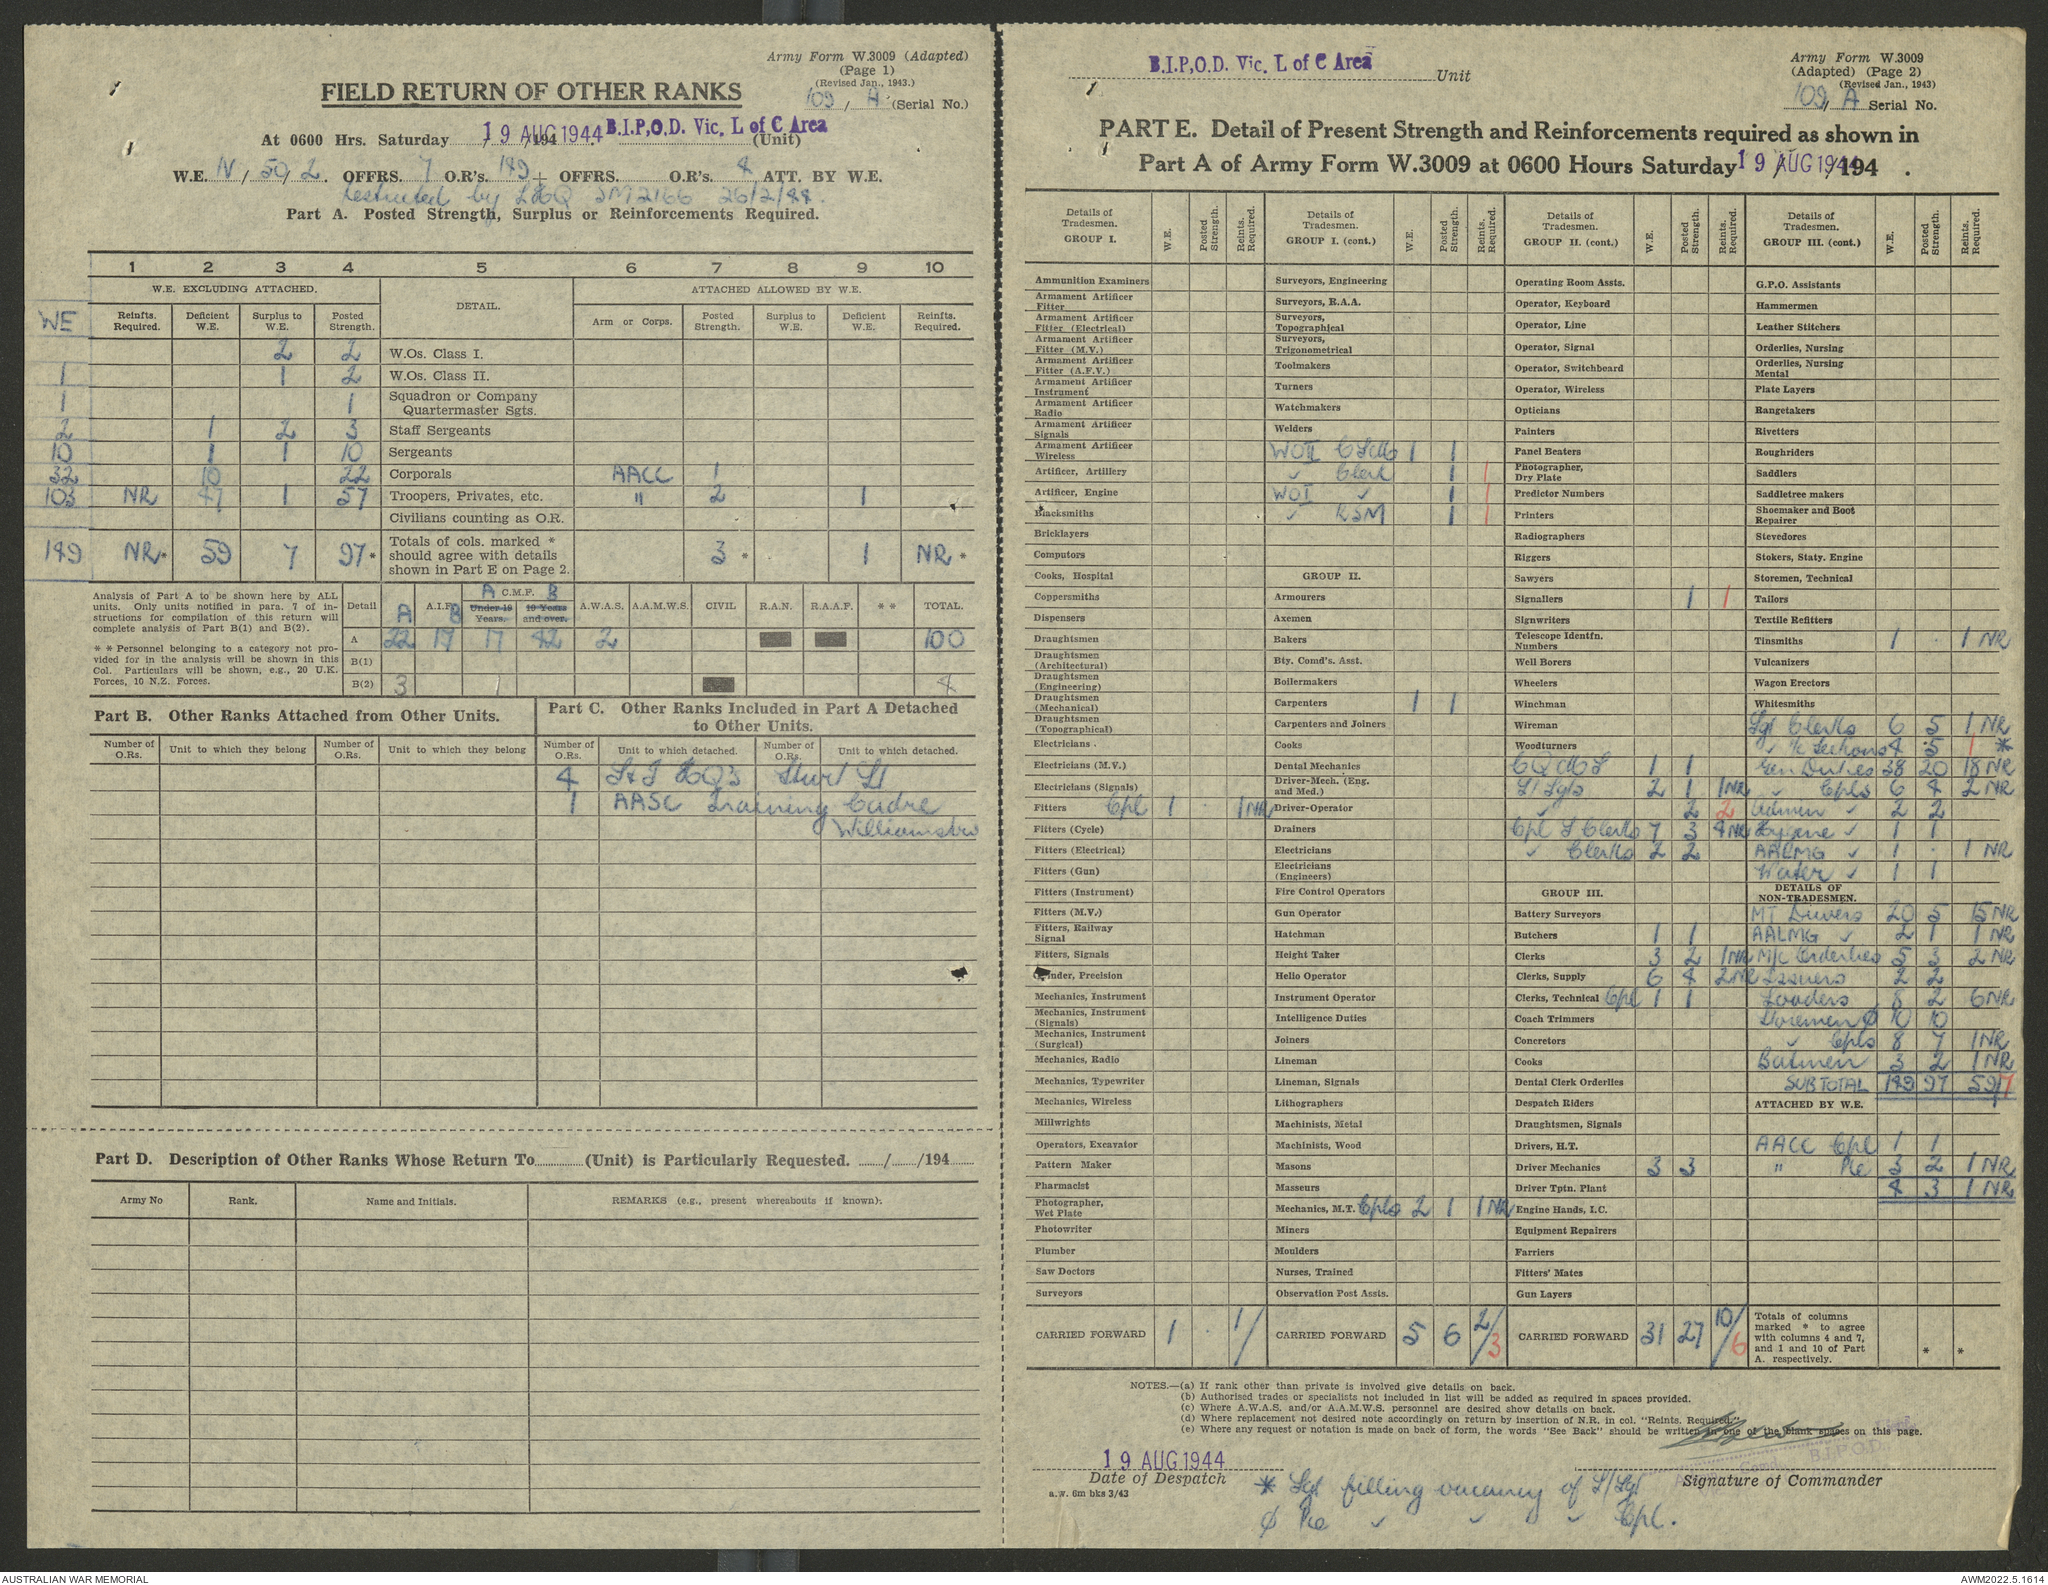 Army Form W.3009 (Adapted)
(Page 1)
(Revised Jan., 1943.)
FIELD RETURN OF OTHER RANKS
109 / A (Serial No.)
At 0600 Hrs. Saturday 19 AUG 1944 /194 . B.I.P,O.D. Vic. L of C Area (Unit)
W.E. IV / 50 / 2. OFFRS. 7 O.R's. 149 + OFFRS. O.R's. 4 ATT. BY W.E.
restricted by LHQ SM2166 26/2/44.
Part A. Posted Strength, Surplus or Reinforcements Required.
1 2 3 4 5 6 7 8 9 10
W.E. EXCLUDING ATTACHED. DETAIL. ATTACHED ALLOWED BY W.E.
WE Reinfts. Required. Deficient W.E. Surplus to W.E. Posted Strength. Arm or Corps. Posted Strength. Surplus to W.E. Deficient W.E. Reinfts. Required.
2 2 W.Os. Class I.
1 1 2 W.Os. Class II.
1 1 Squadron or Company Quartermaster Sgts.
2 1 2 3 Staff Sergeants
10 1 1 10 Sergeants
32 10 22 Corporals AACC 1
103 NR 47 1 57 Troopers, Privates, etc. " 2 1
Civilians counting as O.R.
149 NR* 59 7 97* Totals of cols. marked * should agree with details shown in Part E on Page 2. 3 * 1 NR *
Analysis of Part A to be shown here by ALL units. Only units notified in para. 7 of instructions for compilation of this return will complete analysis of Part B(1) and B(2).
* * Personnel belonging to a category not provided for in the analysis will be shown in this Col. Particulars will be shown, e.g., 20 U.K. Forces, 10 N.Z. Forces.
Detail A A.I.F. B A C.M.F. B Under 19 Years. 19 Years and over. A.W.A.S. A.A.M.W.S. CIVIL R.A.N. R.A.A.F. * * TOTAL.
A 22 17 17 42 2 100
B(1)
B(2) 3 1 4
Part B. Other Ranks Attached from Other Units.
Part C. Other Ranks Included in Part A Detached to Other Units.
Number of O.Rs. Unit to which they belong Number of O.Rs. Unit to which they belong Number of O.Rs. Unit to which detached. Number of O.Rs. Unit to which detached.
4 L&T HQ's Sturt St
1 AASC Training Cadre
Williamstown
Part D. Description of Other Ranks Whose Return To (Unit) is Particularly Requested. / /194
Army No Rank. Name and Initials. REMARKS (e.g., present whereabouts if known).
B.I.P,O.D. Vic. L of C Area Unit
Army Form W.3009
(Adapted) (Page 2)
(Revised Jan., 1943)
109, A Serial No.
PART E. Detail of Present Strength and Reinforcements required as shown in
Part A of Army Form W.3009 at 0600 Hours Saturday 19 AUG 1944 /194 .
Details of Tradesmen. GROUP I. W.E. Posted Strength. Reints. Required.
Ammunition Examiners
Armament Artificer Fitter
Armament Artificer Fitter (Electrical)
Armament Artificer Fitter (M.V.)
Armament Artificer Fitter (A.F.V.)
Armament Artificer Instrument
Armament Artificer Radio
Armament Artificer Signals
Armament Artificer Wireless
Artificer, Artillery
Artificer, Engine
Blacksmiths
Bricklayers
Computors
Cooks, Hospital
Coppersmiths
Dispensers
Draughtsmen
Draughtsmen (Architectural)
Draughtsmen (Engineering)
Draughtsmen (Mechanical)
Draughtsmen (Topographical)
Electricians .
Electricians (M.V.)
Electricians (Signals)
Fitters Cpl 1 . 1NR
Fitters (Cycle)
Fitters (Electrical)
Fitters (Gun)
Fitters (Instrument)
Fitters (M.V.)
Fitters, Railway Signal
Fitters, Signals
Grinder, Precision
Mechanics, Instrument
Mechanics, Instrument (Signals)
Mechanics, Instrument (Surgical)
Mechanics, Radio
Mechanics, Typewriter
Mechanics, Wireless
Millwrights
Operators, Excavator
Pattern Maker
Pharmacist
Photographer, Wet Plate
Photowriter
Plumber
Saw Doctors
Surveyors
CARRIED FORWARD 1 . 1/
Details of Tradesmen. GROUP I. (cont.) W.E. Posted Strength. Reints. Required.
Surveyors, Engineering
Surveyors, R.A.A.
Surveyors, Topographical
Surveyors, Trigonometrical
Toolmakers
Turners
Watchmakers
Welders
WOII 1 1
" Clerk 1 1
WOI " 1 1
" RSM 1 1
GROUP II.
Armourers
Axemen
Bakers
Bty. Comd's. Asst.
Boilermakers
Carpenters 1 1
Carpenters and Joiners
Cooks
Dental Mechanics
Driver-Mech. (Eng. and Med.)
Driver-Operator
Drainers
Electricians
Electricians (Engineers)
Fire Control Operators
Gun Operator
Hatchman
Height Taker
Helio Operator
Instrument Operator
Intelligence Duties
Joiners
Lineman
Lineman, Signals
Lithographers
Machinists, Metal
Machinists, Wood
Masons
Masseurs
Mechanics, M.T. Cpls 2 1 1NR
Miners
Moulders
Nurses, Trained
Observation Post Assts.
CARRIED FORWARD 5 6 2/3
Details of Tradesmen. GROUP II. (cont.) W.E. Posted Strength. Reints. Required.
Operating Room Assts.
Operator, Keyboard
Operator, Line
Operator, Signal
Operator, Switchboard
Operator, Wireless
Opticians
Painters
Panel Beaters
Photographer, Dry Plate
Predictor Numbers
Printers
Radiographers
Riggers
Sawyers
Signallers 1 1
Signwriters
Telescope Identfn. Numbers
Well Borers
Wheelers
Winchman
Wireman
Woodturners
CQMS 1 1
S/Sgts 2 1 1NR
" 2 2
Cpl S Clerks 7 3 4NR
" Clerks 2 2
GROUP III.
Battery Surveyors
Butchers 1 1
Clerks 3 2 1NR
Clerks, Supply 6 4 2NR
Clerks, Technical Cpl 1 1
Coach Trimmers
Concretors
Cooks
Dental Clerk Orderlies
Despatch Riders
Draughtsmen, Signals
Drivers, H.T.
Driver Mechanics 3 3
Driver Tptn. Plant
Engine Hands, I.C.
Equipment Repairers
Farriers
Fitters' Mates
Gun Layers
CARRIED FORWARD 31 27 10/6
Details of Tradesmen. GROUP III. (cont.) W.E. Posted Strength. Reints. Required.
G.P.O. Assistants
Hammermen
Leather Stitchers
Orderlies, Nursing
Orderlies, Nursing Mental
Plate Layers
Rangetakers
Rivetters
Roughriders
Saddlers
Saddletree makers
Shoemaker and Boot Repairer
Stevedores
Stokers, Staty. Engine
Storemen, Technical
Tailors
Textile Refitters
Tinsmiths 1 . 1 NR
Vulcanizers
Wagon Erectors
Whitesmiths
Sgt Clerks 6 5 1 NR
" 4 5 1 *
Gen Duties 38 20 18 NR
" Cpls 6 4 2 NR
" 2 2
Hygiene " 1 1
AALMG " 1 . 1 NR
Water " 1 1
DETAILS OF NON-TRADESMEN.
MT Drivers 20 5 15 NR
AALMG " 2 1 1 NR
M/c Orderlies 5 3 2 NR
Issuers 2 2
Loaders 8 2 6NR
Storemen ϕ 10 10
" Cpls 8 7 1NR
Batmen 3 2 1NR
SUB TOTAL 149 97 59/7
ATTACHED BY W.E.
AACC Cpl 1 1
" Pte 3 2 1 NR
4 3 1 NR
Totals of columns marked * to agree with columns 4 and 7, and 1 and 10 of Part A. respectively. * *
NOTES.—(a) If rank other than private is involved give details on back.
(b) Authorised trades or specialists not included in list will be added as required in spaces provided.
(c) Where A.W.A.S. and/or A.A.M.W.S. personnel are desired show details on back.
(d) Where replacement not desired note accordingly on return by insertion of N.R. in col. "Reints. Required."
(e) Where any request or notation is made on back of form, the words "See Back" should be written in one of the blank spaces on this page.
19 AUG 1944
Date of Despatch
B.I.P.O.D.
Signature of Commander
a.w. 6m bks 3/43
* Sgt filling vacancy of S/Sgt
ϕ Pte " " " Cpl.
AUSTRALIAN WAR MEMORIAL
AWM2022.5.1614